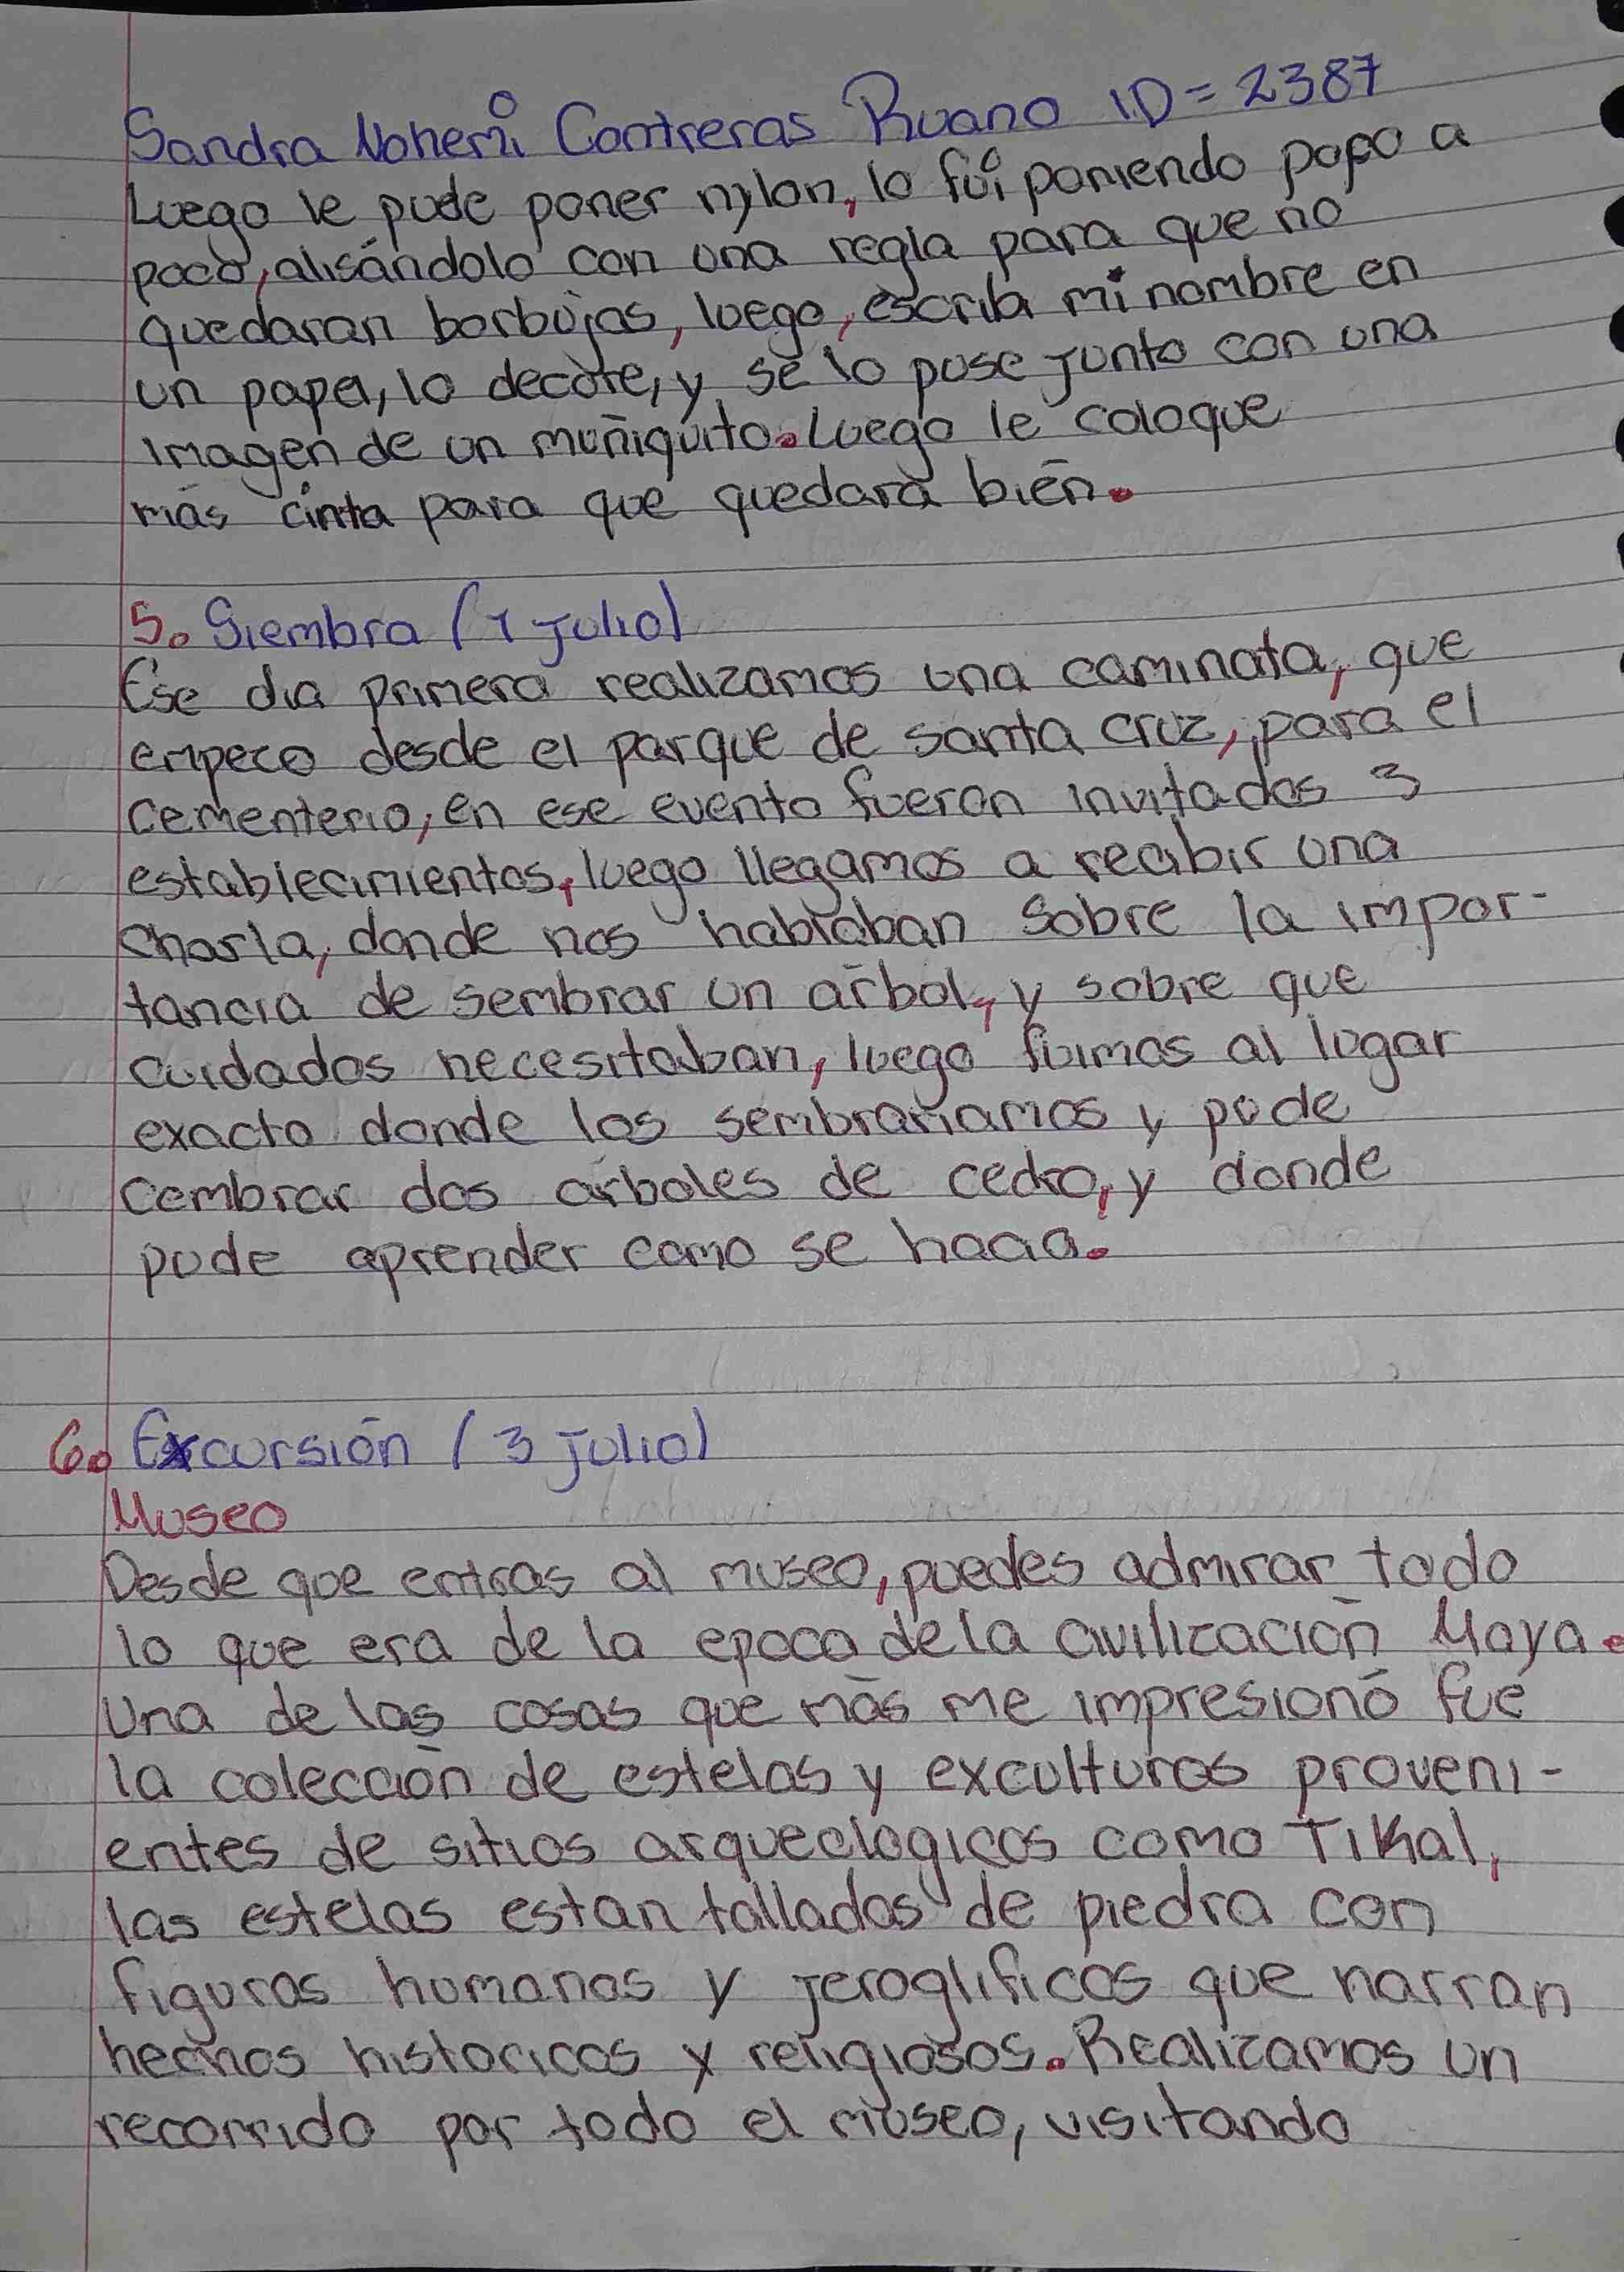 Sandra Nohemi Contreras Ruano ID = 2387
Luego le pude poner nylon, lo fui poniendo popo a
poco, alisándolo con una regla para que no
quedaran borbujas, luego, escribi mi nombre en
un papel, lo decore, y se lo puse junto con una
imagen de un muñiquito. Luego le coloque
más cinta para que quedara bién.
5. Siembra (1 julio)
Ese dia primero realizamos una caminata, que
empeco desde el parque de santa cruz, para el
cementerio, en ese evento fueron invitados 3
establecimientos, luego llegamos a recibir una
charla, donde nos hablaban sobre la impor-
tancia de sembrar un árbol, y sobre que
cuidados necesitaban, luego fuimos al lugar
exacto donde los sembrariamos y pude
cembrar dos arboles de cedro, y donde
pude aprender como se hacia.
6. Excursión (3 julio)
Museo
Desde que entras al museo, puedes admirar todo
lo que era de la epoca de la civilización Maya.
Una de las cosas que más me impresionó fue
la colección de estelas y exculturas proveni-
entes de sitios arqueologicos como Tikal,
las estelas estan tallados de piedra con
figuras humanas y jeroglificos que narran
hechos historicos y religiosos. Realizamos un
recorrido por todo el museo, visitando